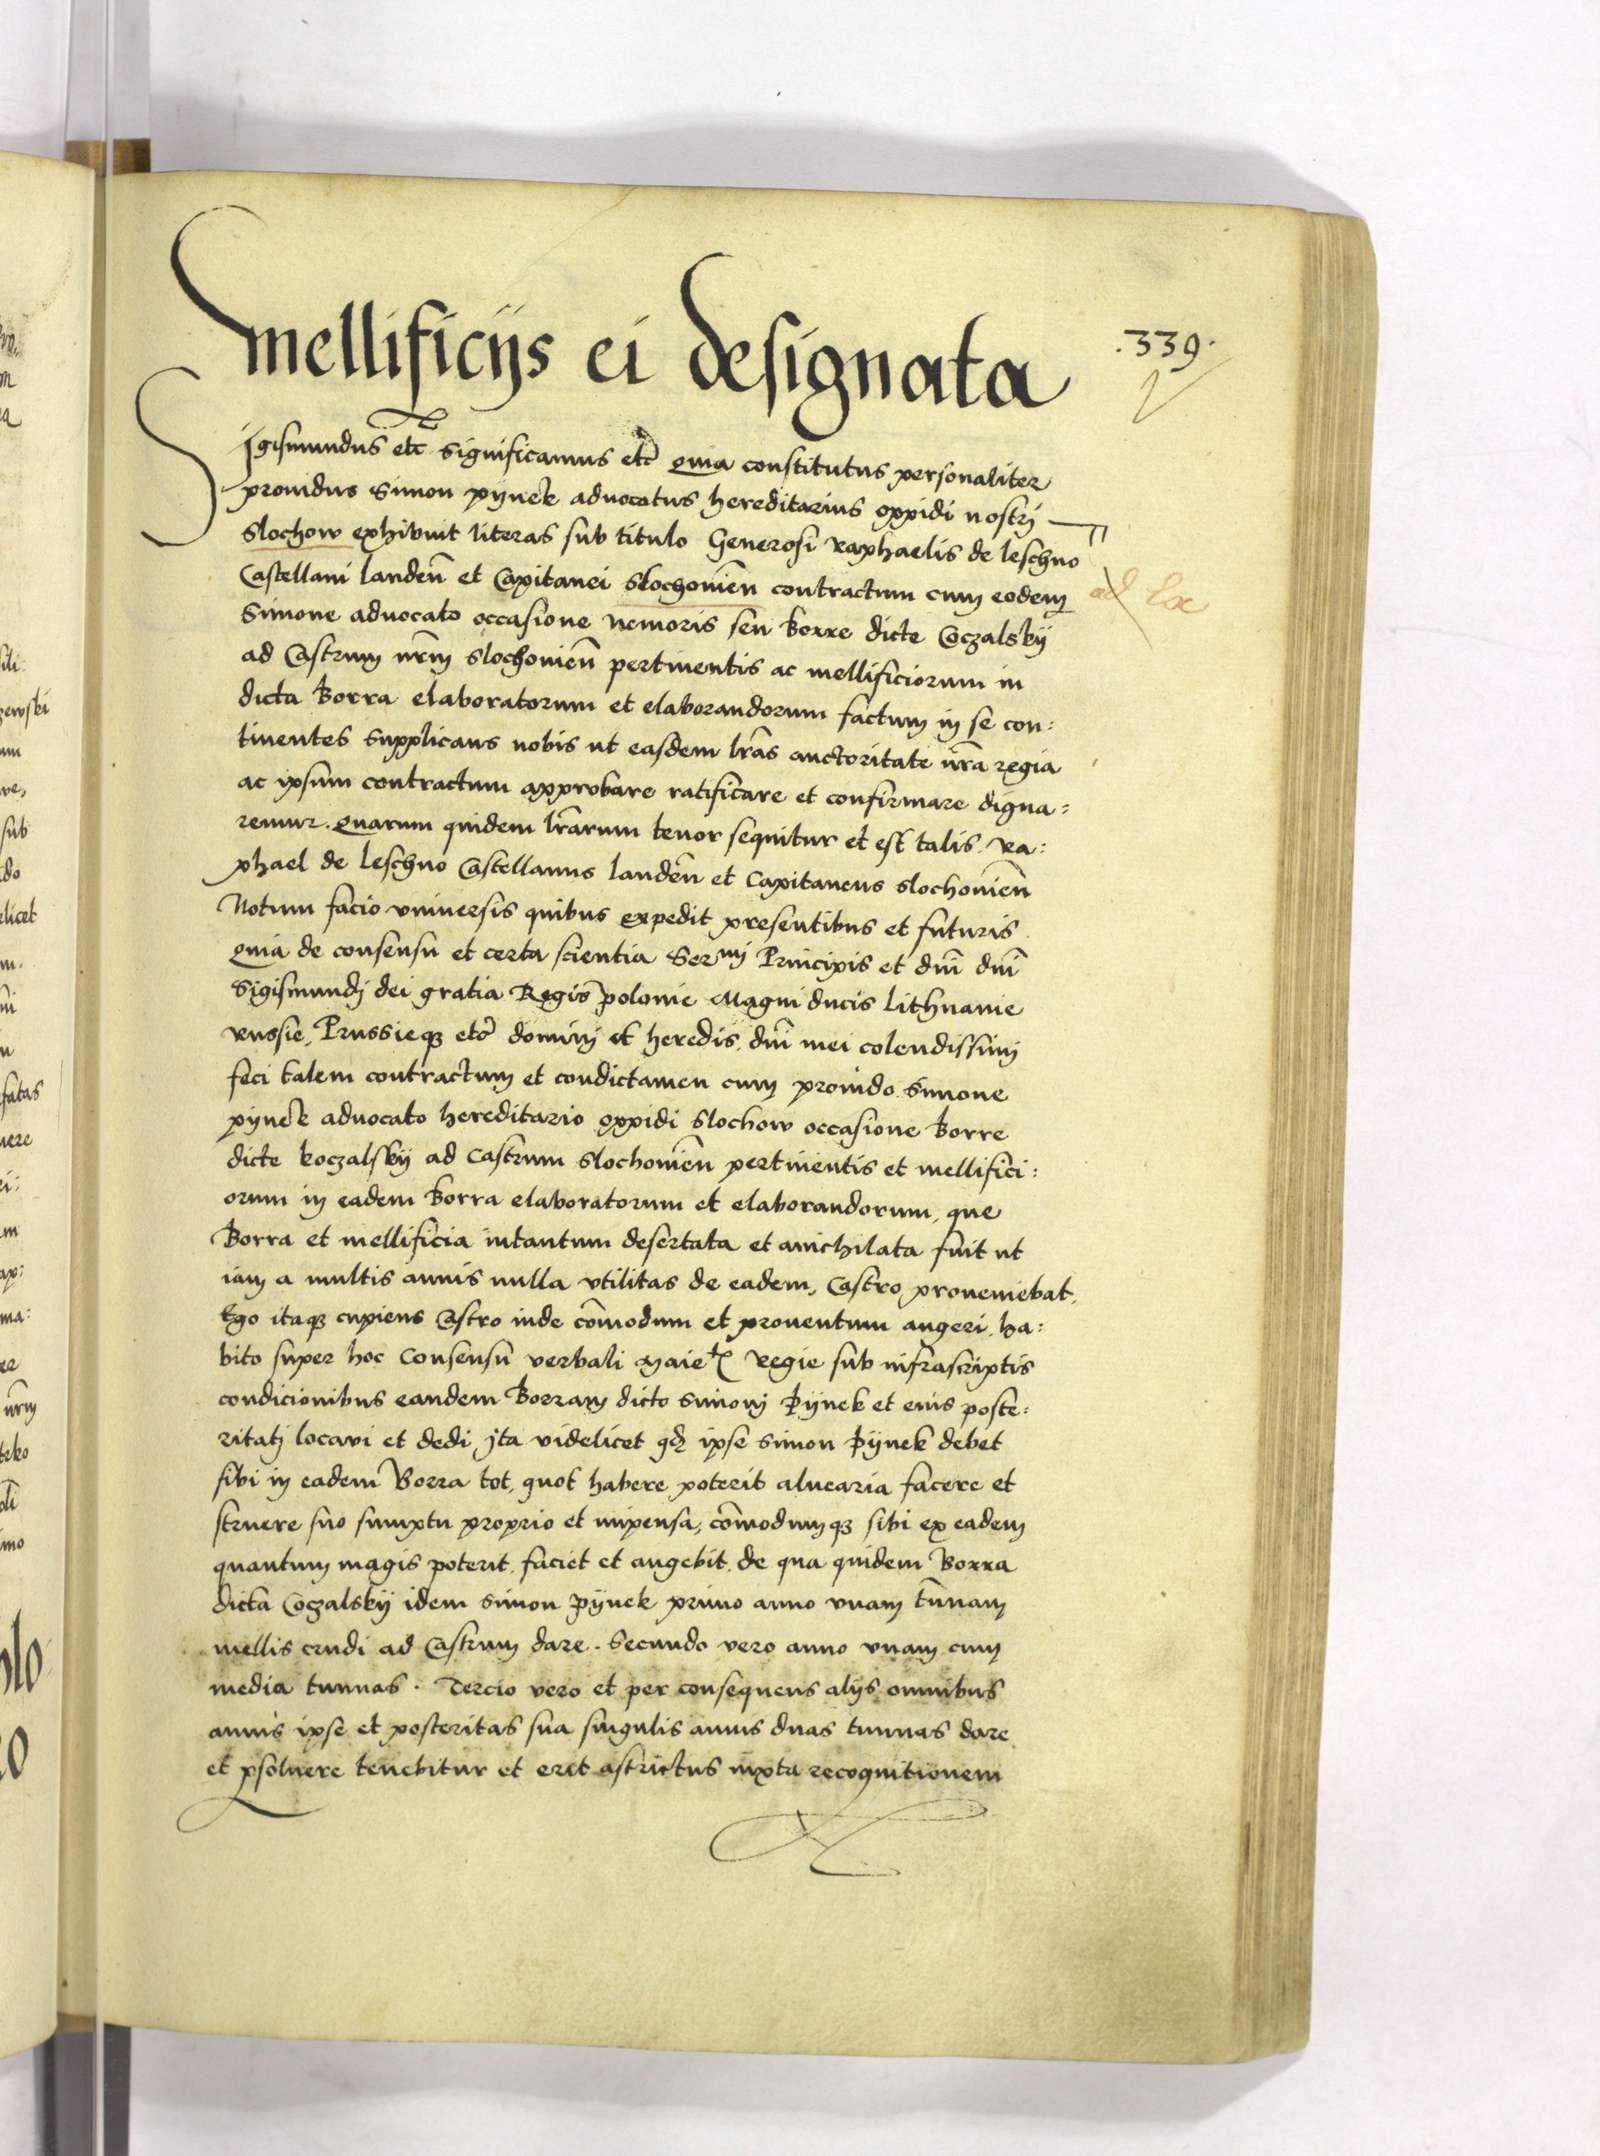 mellificijs ei designata
.339.
Sigismundus etc̃ significamus etc̃ quia constitutus personaliter
prouidus Simon pijnek aduocatus hereditarius oppidi nostri
Slochow exhibuit literas sub titulo Generosi raphaelis de leschno
Castellani landeñ et Capitanei Slochouieñ contractum cum eodem
Simone aduocato occasione nemoris seu borre dicte Coczalskij
ad Castrum nr̃m slochouieñ pertinentis ac mellificiorum in
dicta borra elaboratorum et elaborandorum factum in se con:
tinentes supplicans nobis ut easdem lr̃as auctoritate nr̃a regia
ac ipsum contractum approbare ratificare et confirmare digna:
remur. Quarum quidem lr̃arum tenor sequitur et est talis. Ra:
phael de leschno Castellanus landeñ et Capitaneus slochouieñ
Notum facio vniuersis quibus expedit presentibus et futuris
quia de consensu et certa scientia Ser^mi Principis et dñi dñi
Sigismundi dei gratia Regis polonie Magni ducis lithuanie
russie, Prussieq; etc̃ domini et heredis. dñi mei colendissimi
feci talem contractum et condictamen cum prouido Simone
pijnek aduocato hereditario oppidi slochow occasione borre
dicte koczalskij ad castrum slochouieñ pertinentis et mellifici:
orum in eadem borra elaboratorum et elaborandorum, que
Borra et mellificia intantum desertata et anichilata fuit ut
iam a multis annis nulla vtilitas de eadem, Castro proueniebat,
Ego itaq; cupiens Castro inde cõmodum et prouentum augeri, ha:
bito super hoc consensu verbali Maie^t regie sub infrascriptis
condicionibus eandem borram dicto Simoni Pijnek et eius poste:
ritati locaui et dedi jta videlicet qd ipse Simon Pijnek debet
sibi in eadem Borra tot, quot habere poterit aluearia facere et
struere suo sumptu proprio et impensa, cõmodumq; sibi ex eadem
quantum magis poterit faciet et augebit. de qua quidem Borra
dicta Coczalskij idem simon Pijnek primo anno vnam tũnam
mellis crudi ad Castrum dare. Secundo vero anno vnam cum
media tunnas. Tercio vero et per consequens alijs omnibus
annis ipse et posteritas sua singulis annis duas tunnas dare
et psoluere tenebitur et erit astrictus iuxta recognitionem